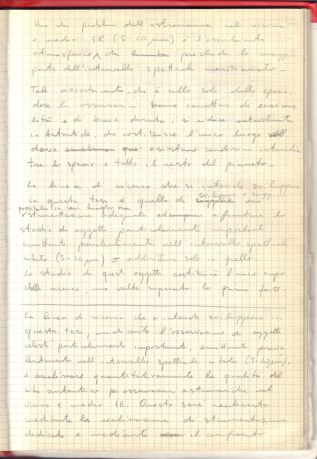 Uno dei problemi dell'astronomia nel vicino
e medio IR (5-10 μm) è l'assorbimento
atmosferico, che preclude la maggior
parte dell'intervallo spettrale menzionato
Tale assorbimento, che è nullo solo dallo spazio,
dove le osservazioni hanno carattere di eccezione
lità e di breve durata, si riduce notevolmente
in Antartide, da costituire l'unico luogo
dove esistano condizioni intermedie
tra lo spazio e tutto il resto del pianeta.
La linea di ricerca che si intende sviluppare
in questa tesi è quella di
strumentazione adeguata
studio di oggetti particolarmente importanti
emittenti prevalentemente nell'intervallo spettrale
citato (5-10 μm) o addirittura solo in quello.
Lo studio di questi oggetti costituirà l'unico scopo
della ricerca, una volta superata la prima fase.
La linea di ricerca che si intende sviluppare
questa tesi, l'osservazione di oggetti
celesti particolarmente importanti emittenti preva
lentemente nell'intervallo spettrale citato
e realizzare quantitativamente la qualità del
sito antartico per osservazioni astronomiche nel
vicino e medio IR. Questo sarà realizzato
mediante la realizzazione di strumentazione
dedicata e mediante il confronto